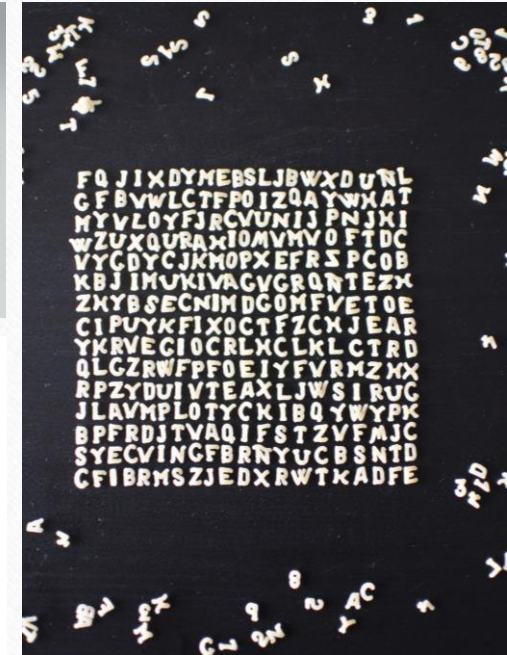 FQJIXDYMEBSLJBWXDUNL
GFBVWLCTFPOIZQAYWHAT
MYVLOYFJRCVUNIJPNJHI
WZUXQURAHIOMVMVOFTDC
VYCDYCJKMOPXEFRSPCOB
KBJIMUKIVAGVGRQNTEZH
ZHYBSECNIMDGOMFVETOE
CIPUYKFIXOCTFZCHJEAR
YKRVEGIOCRLHCLKLCTRD
QLGZRWFPFOEIYFVRMZHX
RPZYDUIVTEAXLJWSIRUG
JLAVMPLOTYCKIBQYWYPK
BPFRDJTVAQIFSTZVFMJC
SYECVINGFBRNYUCBSNTD
CFIBRMSZJEDXRWTKADFE